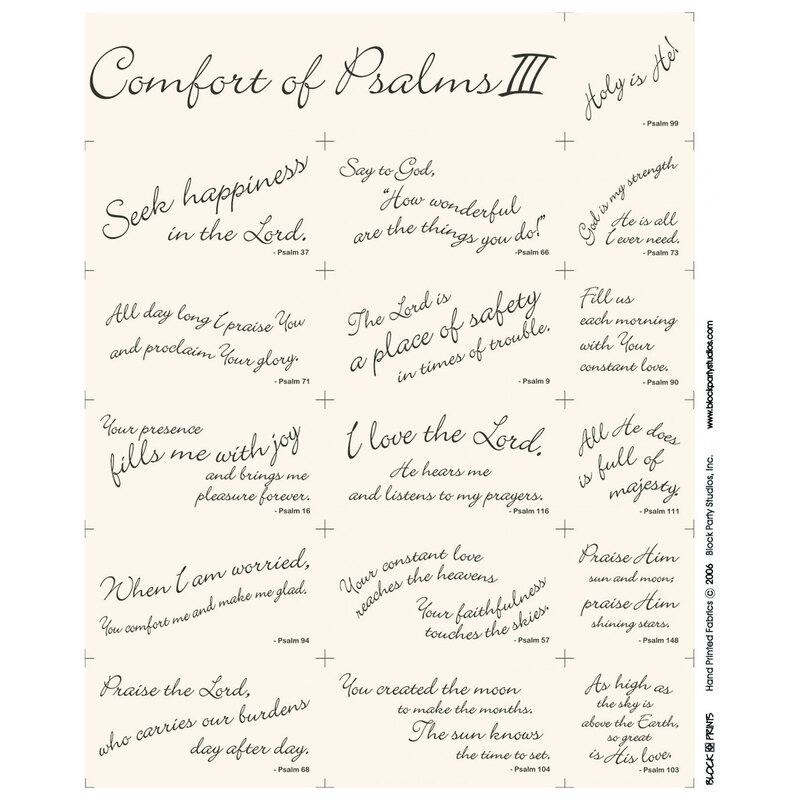 Comfort of Psalms III
Holy is He!
- Psalm 99
Seek happiness
in the Lord.
- Psalm 37
Say to God,
"How wonderful
are the things you do!"
-Psalm 66
God is my strength
He is all
I ever need.
- Psalm 73
All day long I praise You
and proclaim Your glory.
- Psalm 71
The Lord is
a place of safety
in times of trouble.
- Psalm 9
Fill us
each morning
with Your
constant love.
- Psalm 90
Your presence
fills me with joy
and brings me
pleasure forever.
- Psalm 16
I love the Lord.
He hears me
and listens to my prayers.
- Psalm 116
All He does
is full of
majesty.
- Psalm 111
When I am worried,
You comfort me and make me glad.
- Psalm 94
Your constant love
reaches the heavens
Your faithfulness
touches the skies.
- Psalm 57
Praise Him
sun and moon;
praise Him
shining stars.
- Psalm 148
Praise the Lord,
who carries our burdens
day after day.
- Psalm 68
You created the moon
to make the months.
The sun knows
the time to set.
- Psalm 104
As high as
the sky is
above the Earth,
so great
is His love.
- Psalm 103
BLOCK PRINTS Hand Printed Fabrics © 2006 Block Party Studios, Inc. www.blockpartystudios.com